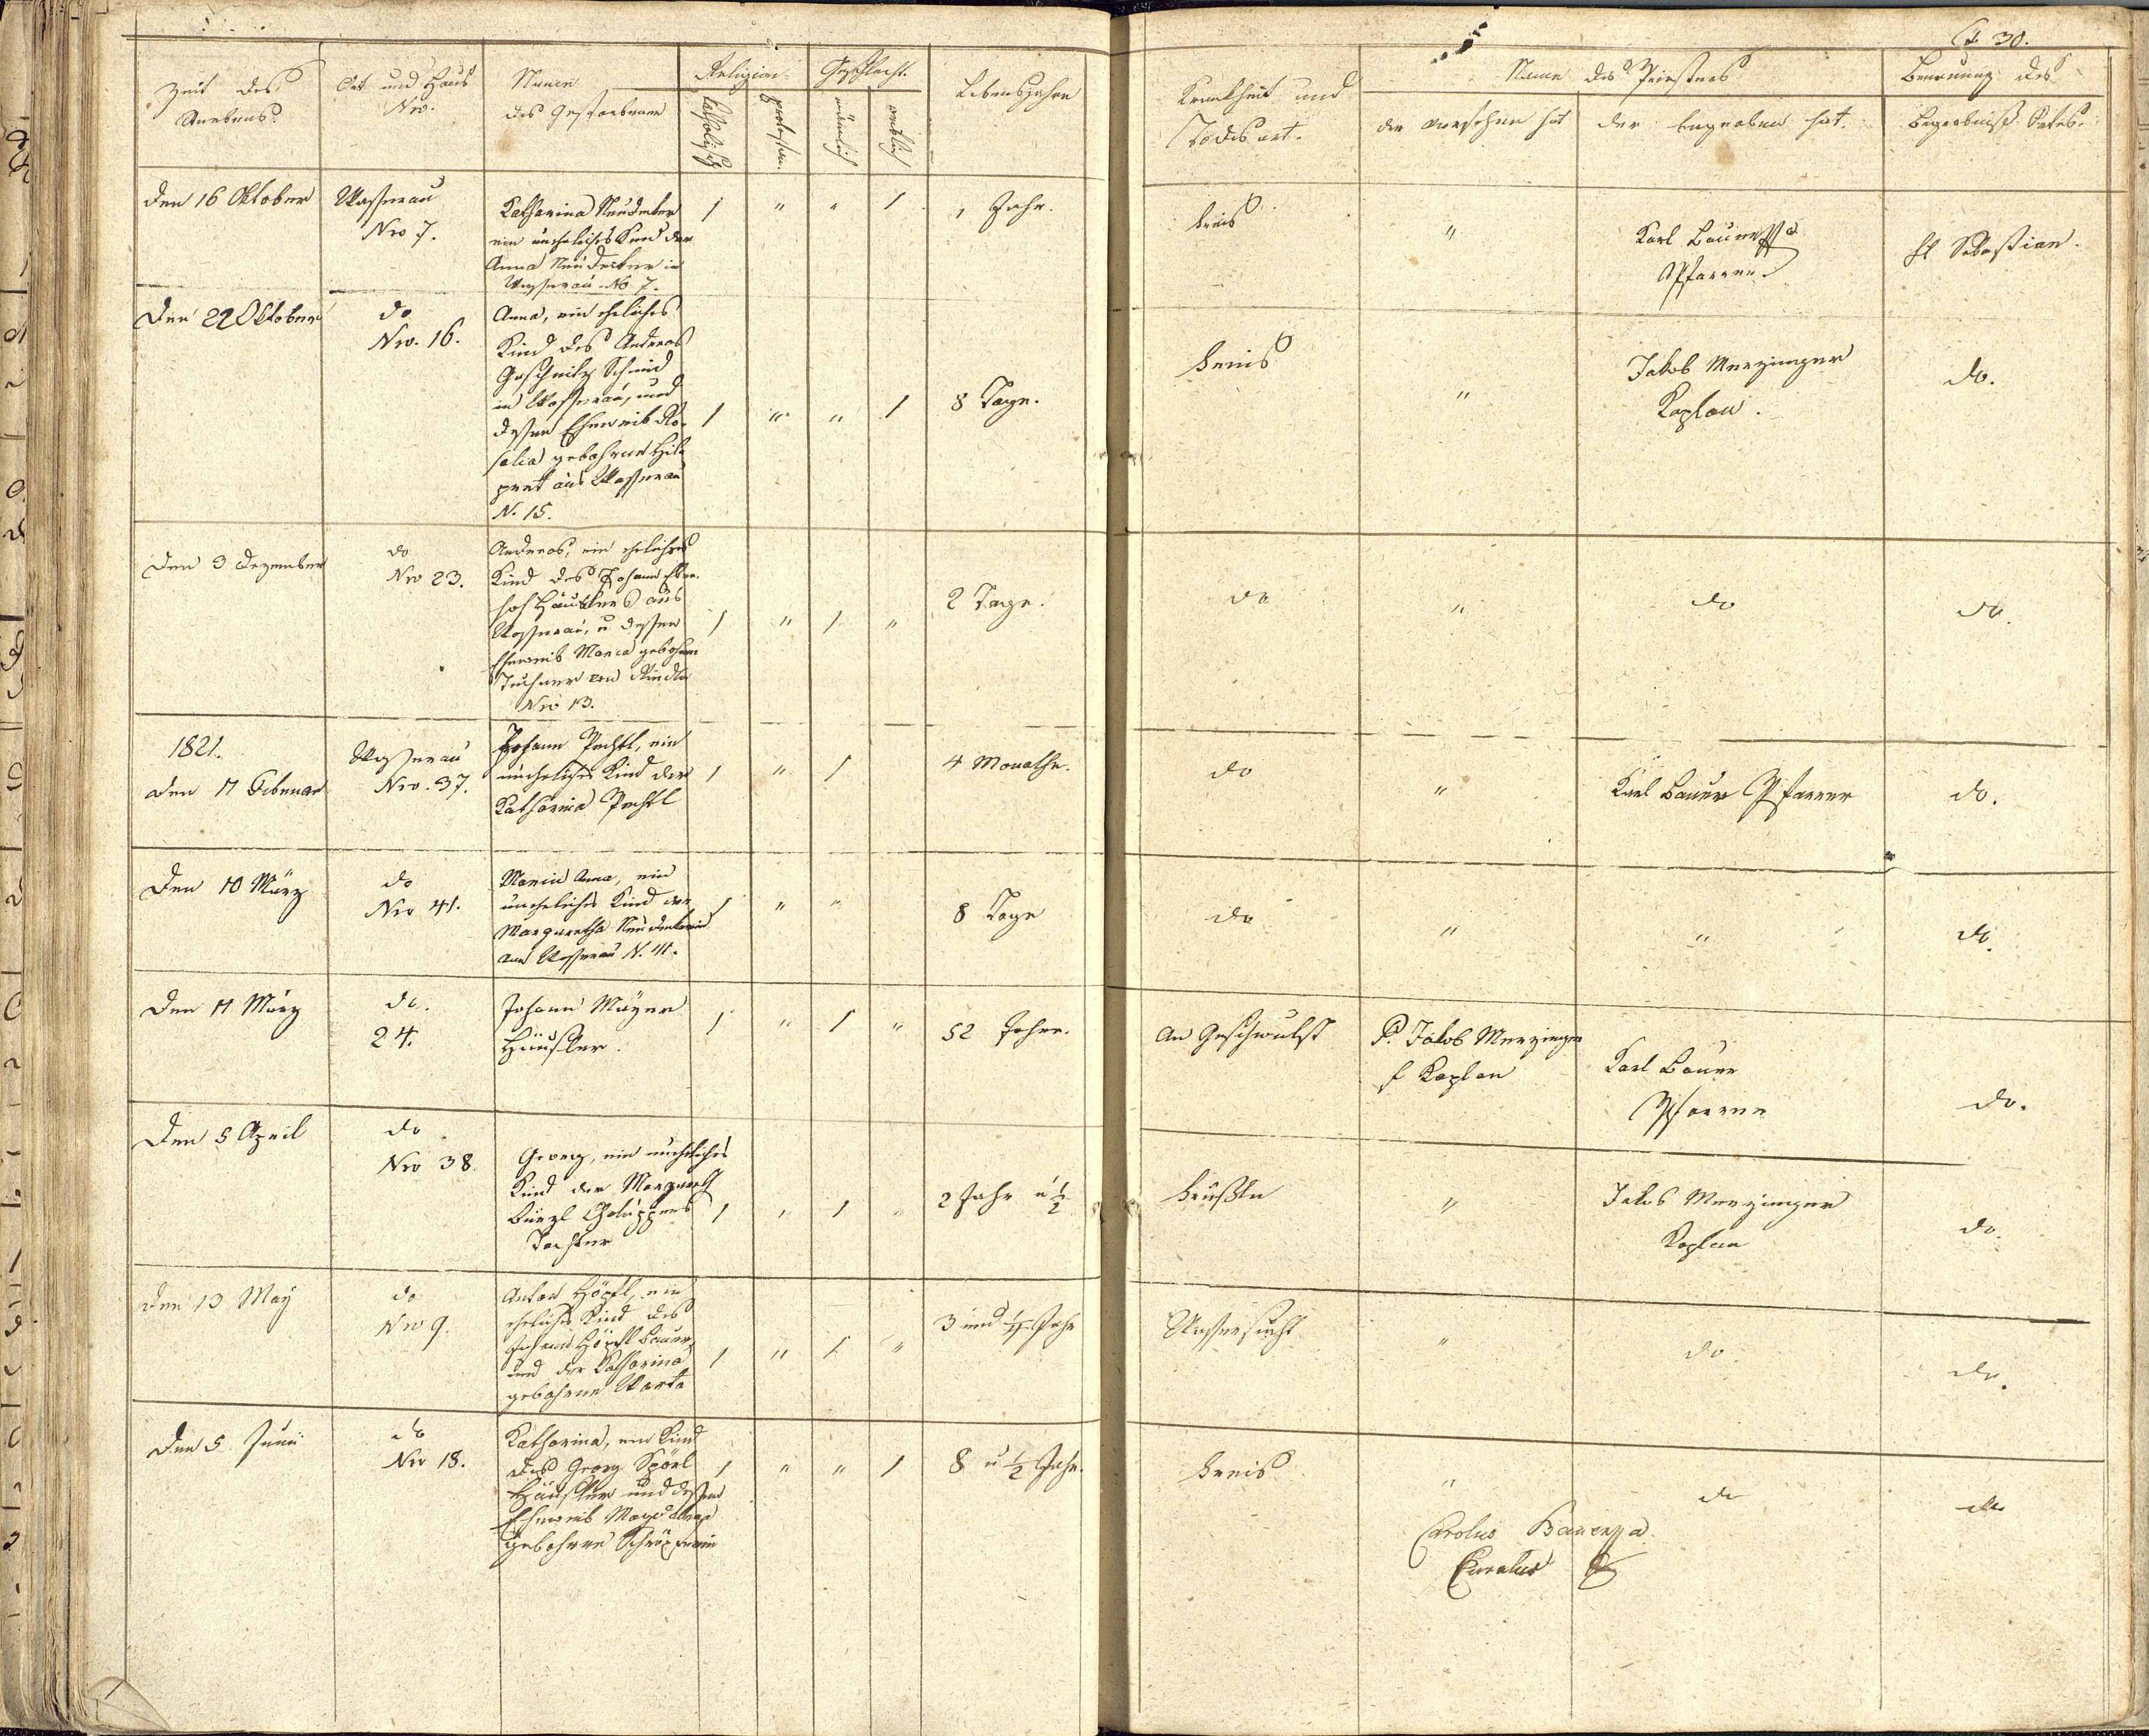 30.
Zeit des
Sterbens.
Ort und Haus
Nro.
Name
des Gestorbenen
Religion
katholisch
protestan.
Geschlecht.
männlich
weiblich
Lebensjahre
Krankheit und
Todesart.
Name des Priesters
der versehen hat
der begraben hat.
Benennung des
Begräbniß Ortes.
Den 16 Oktober
Wasserau
Nro 7.
Katharina Neudecker
ein uneheliches Kind der
Anna Neudecker in
Wasserau No 7.
1 " " 1
1 Jahr.
Frais
"
Karl Bauer
Pfarrer
St Sebastian.
Den 22 Oktober
do
Nro. 16.
Anna, ein eheliches
Kind des Andreas
Schmid
in Wasserau, und
dessen Eheweib Ro-
salia gebohrne Hil
pert aus Wasserau
N. 15.
1 " " 1
8 Tage.
Frais
"
Jakob Merzinger
Kaplan.
do.
Den 3 Dezember
do
Nro 23.
Andreas, ein eheliches
Kind des Johann
Häuslers aus
Wasserau, u dessen
Eheweib Maria gebohrne
Nro 13.
1 " 1 "
2 Tage.
do
"
do
do.
1821.
Den 17 Februar
Wasserau
Nro. 37.
Johann Pechtl, ein
uneheliches Kind der
Katharina Pechtl
1 " 1
4 Monathe.
do
"
Karl Bauer Pfarrer
do.
Den 10 März
do
Nro 41.
Maria Anna, ein
uneheliches Kind der
Margaretha Neudeckerin
aus Wasserau N. 41.
1 " "
8 Tage
do
"
"
do.
Den 11 März
do.
24.
Johann Mayer
Häusler.
1 " 1 "
52 Jahre.
An Geschwulst
P. Jakob Merzinger
Kaplan
Karl Bauer
Pfarrer
do.
Den 5 April
do
Nro 38.
Georg, ein uneheliches
Kind der Margareth
Tochter
1 " 1 "
2 Jahr u ½
"
Jakob Merzinger
Kaplan
do.
Den 13 May
do
Nro 9.
Anton Höpfl, ein
eheliches Kind des
Johann Höpfl Bauer,
und der Katharina
gebohrne
1 " 1 "
3 und ¼ Jahr
Wassersucht
"
do
do.
Den 5 Juni
do
Nro 18.
Katharina, ein Kind
des Georg Spörl
Häusler und dessen
Eheweib Magdalena
gebohrne
1 " " 1
8 u ½ Jahr.
Frais
"
do
do
Carolus Bauer
Curatus